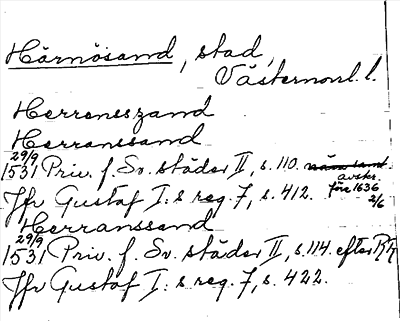 Härnösand, stad,
Västernorrl. l.
Herrenszand
Herranssand
29/9
1531 Priv. f. Sv. städer II, s. 110.
avskr.
före 1636
2/6
Jfr Gustaf I:s reg. 7, s. 412.
Herranssand
29/9
1531 Priv. f. Sv. städer II, s. 114. efter
Jfr Gustaf I:s reg. 7, s. 422.